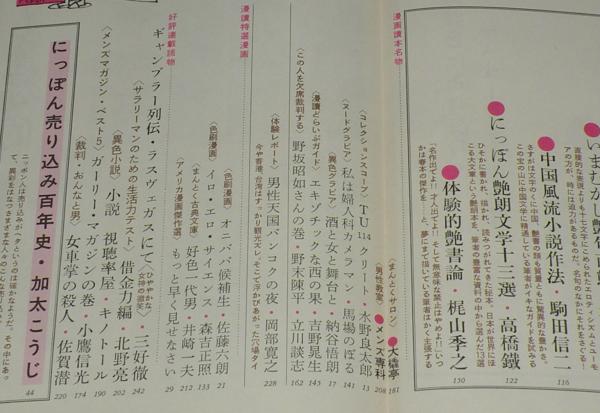 いまむかし艶笑百景
直接的な表現よりも十七文字にこめられたエロティシズムとユーモ
アの方が、時には迫力があるものだ。名句のなかにそれをさぐる！
●中国風流小説作法・駒田信二 116
さすがは文字のくに中国・艶書の類も質量ともに驚異的な豊かさ。
この宝の山に中国文学に精通している筆者がイキなガイドを試みる
●にっぽん艶朗文学十三選・高橋鐵 122
ひそかに書かれ、描かれ、読みつがれてきた秘本。日本が世界にほ
こる大文章という艶朗本を、筆者の豊富な資料の中から選んだ13選
●体験的艶書論 梶山季之 130
〈名作出でよ!!〉名人出でよ！そして無意味な禁止はやめよ!!いつ
かは春本の傑作を……と、夢にまで描いている筆者はかく主張する
漫画讀本名物
〈まんとくサロン〉●大學亭 181
〈男性教室〉●メンズ専科 208
〈コレクションスコープ〉TU114クリー 水野良太郎 13
〈ヌードグラビア〉私は婦人科カメラマン・馬場のぼる 141
〈異色グラビア〉酒と女と舞台と・納谷悟朗 17
〈漫讀どらいぶガイド〉エキゾチックな西の果・吉野晃生 145
〈この人を欠席裁判する〉野坂昭如さんの巻・野末陳平・立川談志 162
〈体験レポート〉男性天国バンコクの夜 岡部寛之 228
今や香港、台湾はすっかり観光ズレ、そこで浮かびあがった穴場タイ
漫讀特選漫画
〈色刷漫画〉オニババ候補生 佐藤六朗 21
〈色刷漫画〉イロ・エロ・サイエンス・森吉正照 133
〈まんとく古典文庫〉好色一代男・井崎一夫 212
〈アメリカ漫画傑作選〉もっと早く見せなさい 29
好評連載読物
ギャンブラー列伝・ラスヴェガスにて、ささやかな女神の微笑 三好徹 242
〈サラリーマンのための生活力テスト〉借金力編・北野亮 202
〈異色小説〉小説 視聴率屋・キノトール 190
〈メンズマガジン・ベスト5〉ガーリー・マガジンの巻・小鷹信光 174
〈裁判・おんなと男〉女車掌の殺人・佐賀潜 220
にっぽん売り込み百年史・加太こうじ 44
ニッポン人は売り込みがヘタというのは確かなようだ。その中にあっ
て、異彩をはなつさまざまな人々のこんな売り込み